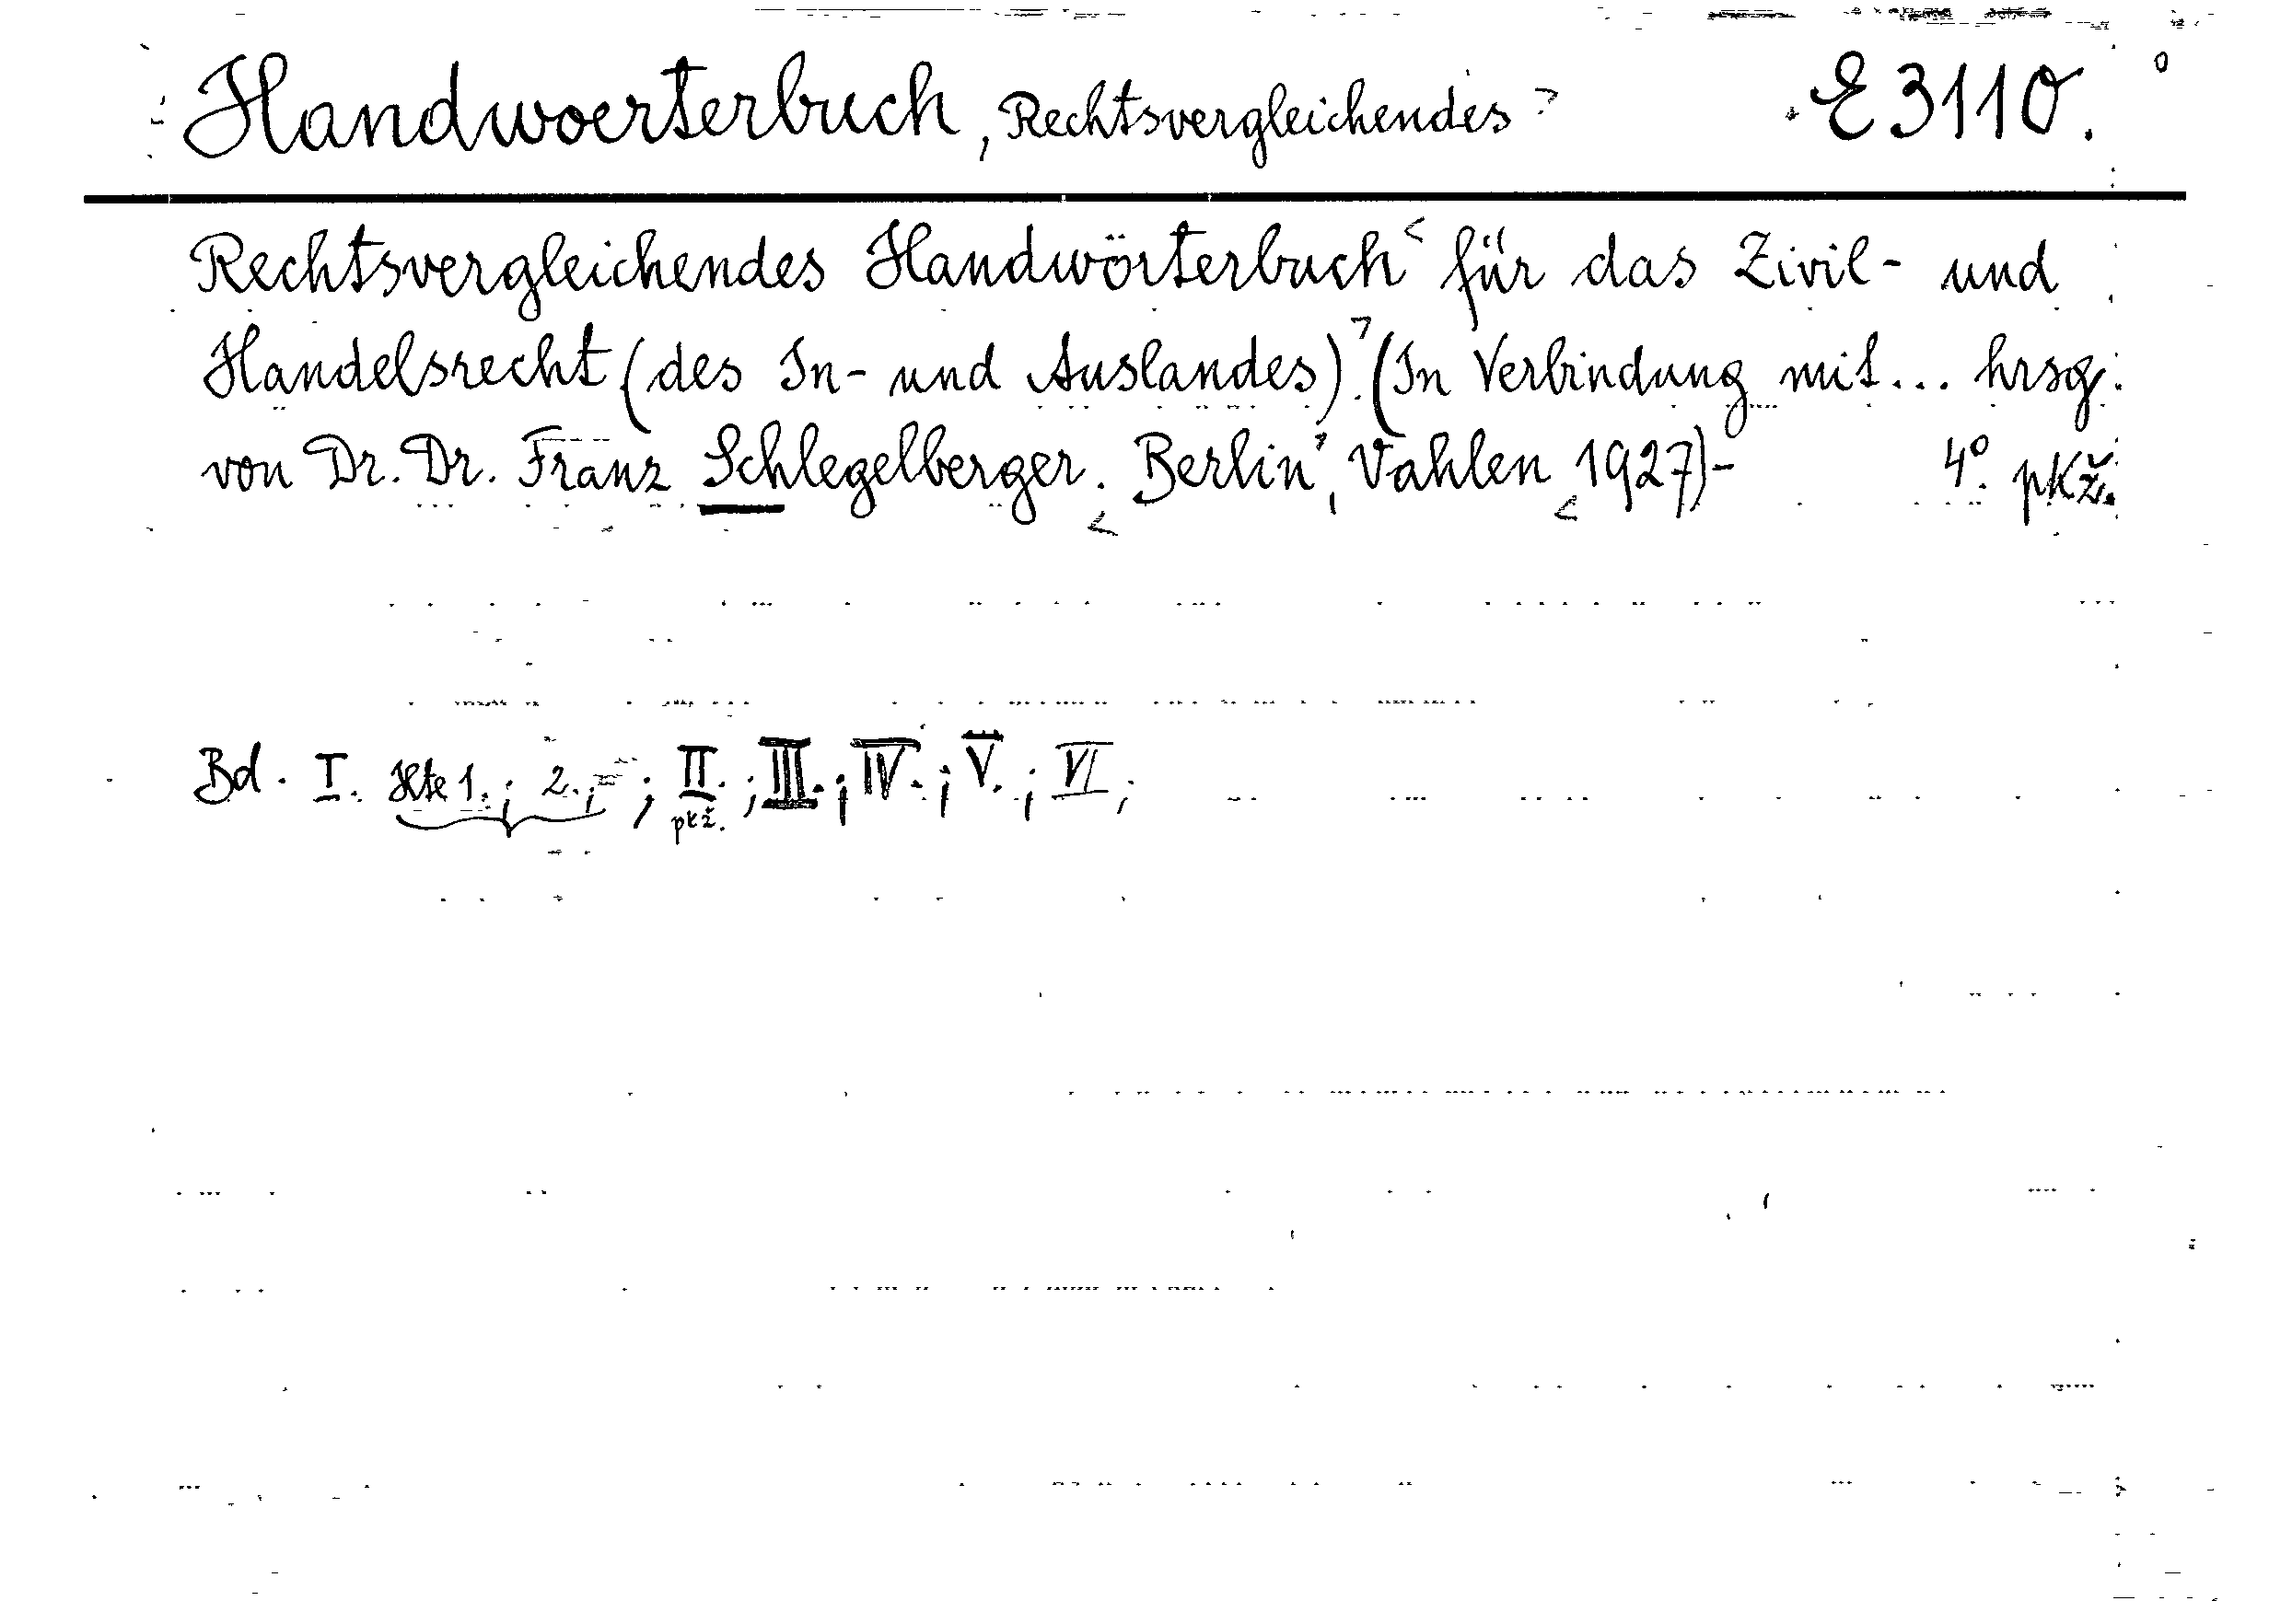 Handwoerterbuch, Rechtsvergleichendes E 3110.
Rechtsvergleichendes Handwörterbuch für das Zivil- und
Handelsrecht (des In- und Auslandes). (In Verbindung mit... hrsg.
von Dr. Dr. Franz Schlegelberger. Berlin, Vahlen 1927)- 4°. pkž.
Bd. I. Hte 1.; 2.; ; II.; III.; IV.; V.; VI;
pkž.